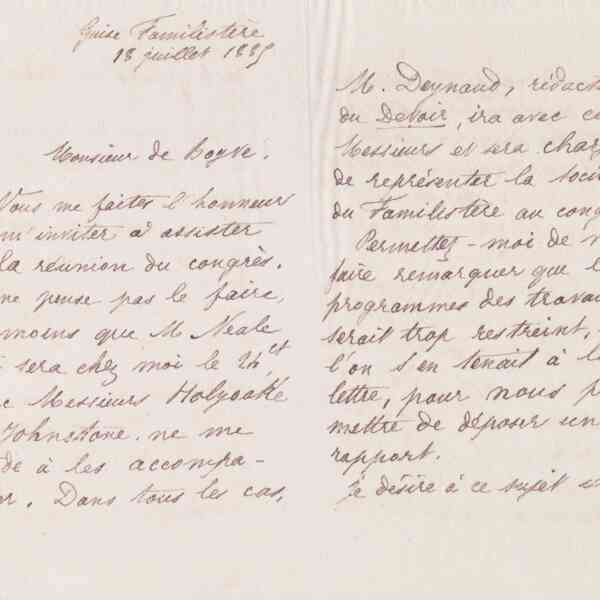 Guise Familistère
18 juillet 1885
Monsieur de Boyve.
Vous me faites l'honneur
m'inviter à assister
la réunion du congrès.
ne pense pas le faire,
moins que M Neale
sera chez moi le 24 ct
Messieurs Holyoake
Johnstone. ne me
de à les accompa-
er. Dans tous les cas,
M. Deynaud, rédact
du Devoir, ira avec ce
Messieurs et sera char
de représenter la soci
du Familistère au cong
Permettez-moi de v
faire remarquer que l
programmes des trava
serait trop restreint,
l'on s'en tenait à l
lettre, pour nous p
mettre de déposer un
rapport.
Je désire à ce sujet